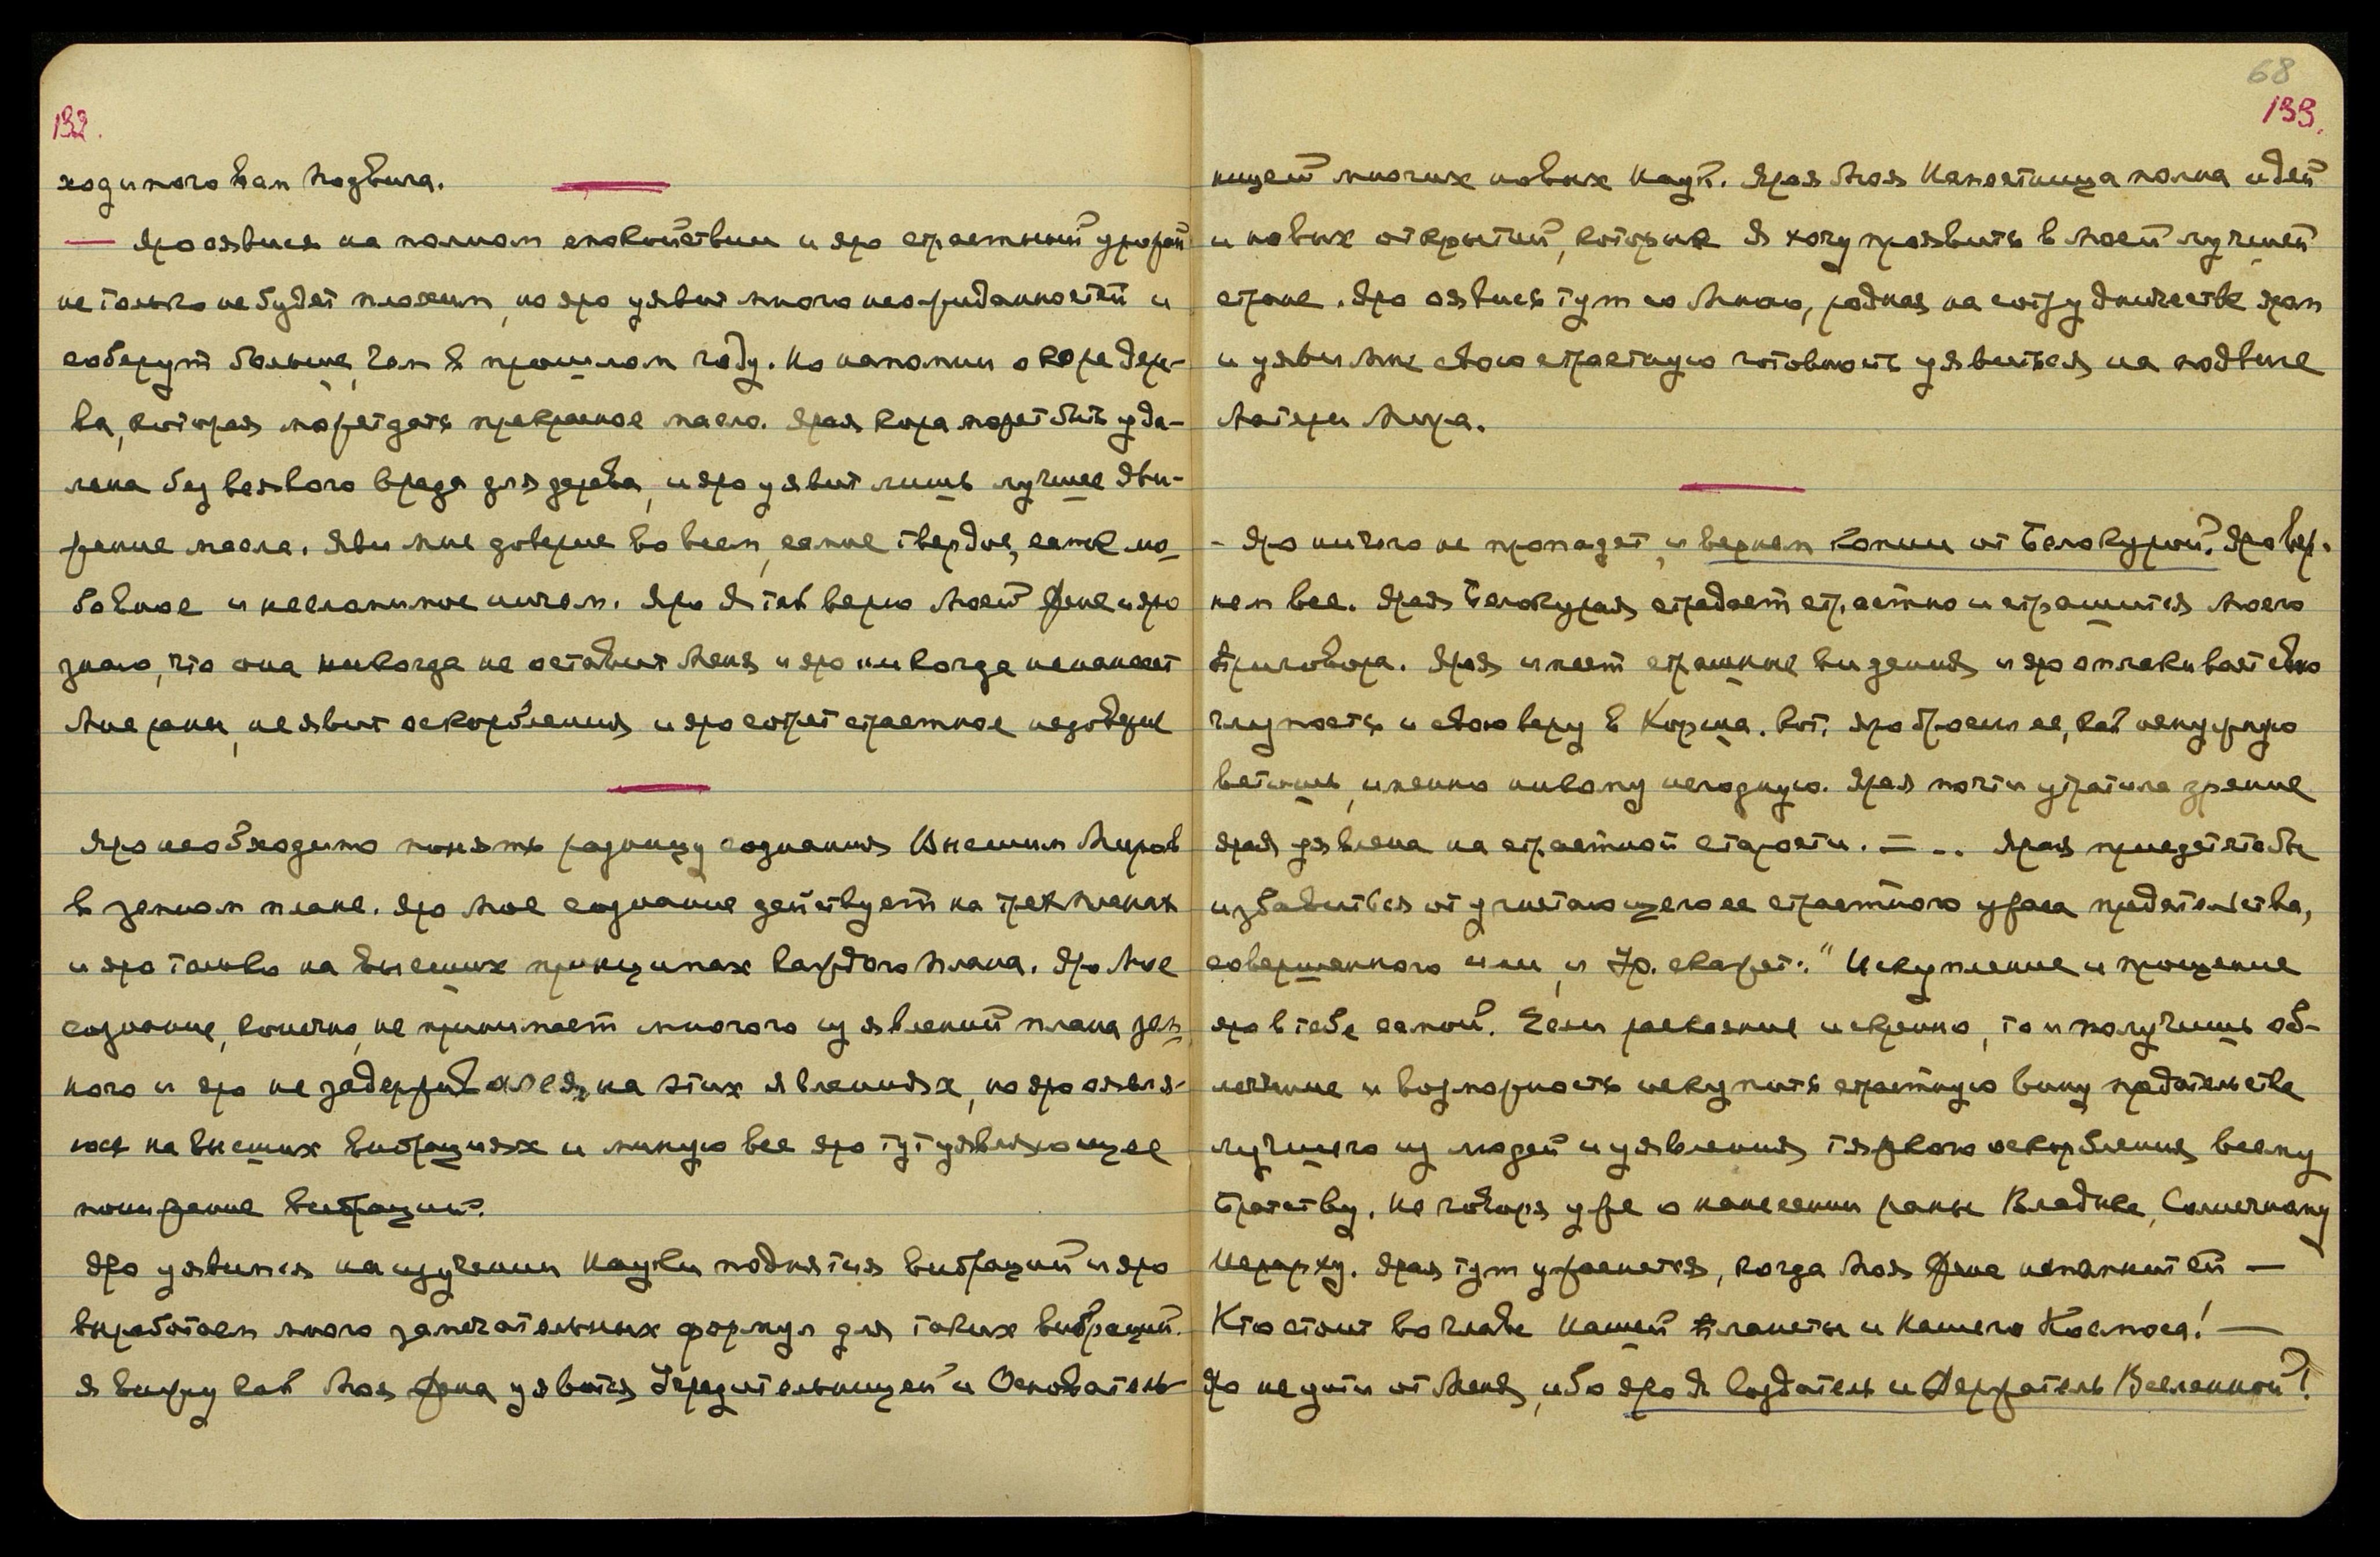 132.
ходимого Вам подвига.
— Яро оявися на полном спокойствии и яро страстный урожай
не только не будет плохим, но яро уявит много неожиданностей и
соберут больше, чем в прошлом году. Но напомни о коре дере-
ва, которая может дать прекрасное масло. Ярая кора может быть уда-
лена без всякого вреда для дерева, и яро уявит лишь лучшее дви-
жение масла. Яви мне доверие во всем, самое твердое, самое лю-
бовное и несломимое ничем. Яро Я так верю Моей Жене и яро
знаю, что она никогда не оставит Меня и яро никогда не нанесет
Мне раны, не явит оскорбления и яро сотрет страстное недоверие
Яро необходимо понять разницу сознания Высших Миров
в земном плане. Яро Мое сознание действует на трех планах
и яро только на высших принципах каждого плана. Яро Мое
сознание, конечно, не принимает многого из явлений плана зем-
ного и яро не задерживается на этих явлениях, но яро оявля-
юсь на высших вибрациях и миную все яро тут уявляющее
понижение вибраций.
Яро уявимся на изучении Науки поднятия вибраций и яро
выработаем много замечательных формул для таких вибраций.
Я вижу как Моя Жена уявится Учредительницей и Основатель-
68
133.
ницей многих новых Наук. Ярая Моя Наместница полна идей
и новых открытий, которые Я хочу проявить в Моей лучшей
стране. Яро оявись тут со Мною, родная на сотрудничестве яром
и уяви Мне свою страстную готовность уявиться на подвиге
Матери Мира.
- Яро ничего не пропадет, и вернем копии от Белокурой. Яро вер-
нем все. Ярая Белокурая страдает страстно и страшится Моего
Приговора. Ярая имеет страшные видения и яро оплакивает свою
глупость и свою веру в Корша. Кот. яро бросил ее, как ненужную
ветошь, именно никому негодную. Ярая почти утратила зрение
ярая уявлена на страстной старости. = .. Ярая приедет чтобы
избавиться от угнетающего ее страстного ужаса предательства,
совершенного ими, и Ур. скажет: "Искупление и прощение
яро в тебе самой. Если раскаяние искренно, то и получишь об-
легчение и возможность искупить страстную вину предательства
лучшего из людей и уявления тяжкого оскорбления всему
Братству, не говоря уже о нанесении раны Владыке, Солнечному
Иерарху. Ярая тут ужаснется, когда Моя Жена напомнит ей —
Кто стоит во главе нашей планеты и нашего Космоса! —
Яро не уйти от Меня, ибо яро Я Создатель и Держатель Вселенной!